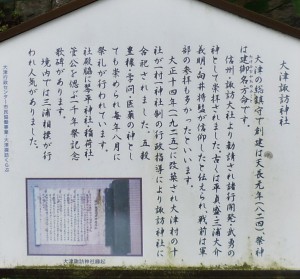 大津諏訪神社
大津の総鎮守で創建は天長元年（八二四）、祭神
は建御名方命です。
信州・諏訪大社より勧請され諸行開発・武勇の
神として崇拝されました。古くは平貞盛、三浦大介
義明、向井将監が信仰したと伝えられ、戦前は軍
部の参拝も多かったといいます。
大正十四年（一九二五）に改築され大津村の十
社が一村一神社制の行政指導により諏訪神社に
合祀されました。五穀
豊穣・学問・医薬の神とし
ても崇められ毎年八月に
祭礼が行われています。
社殿脇に琴平神社・稲荷社・
菅公を偲ぶ一千年祭記念
歌碑があります。
境内では三浦相撲が行
われ人気がありました。
大津諏訪神社縁起